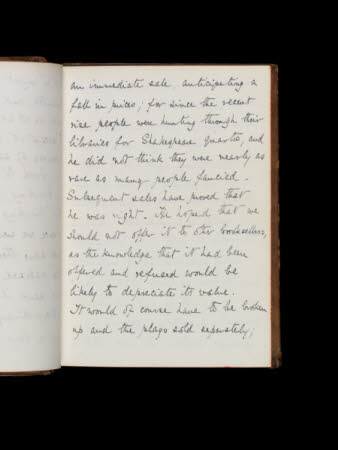 an immediate sale, anticipating a
fall in prices; for since the recent
rise people were hunting through their
libraries for Shakespeare quartos, and
he did not think they were nearly as
rare as many people fancied.
Subsequent sales have proved that
he was right. He hoped that we
should not offer it to other booksellers,
as the knowledge that it had been
offered and refused would be
likely to depreciate its value.
It would of course have to be broken
up and the plays sold separately;